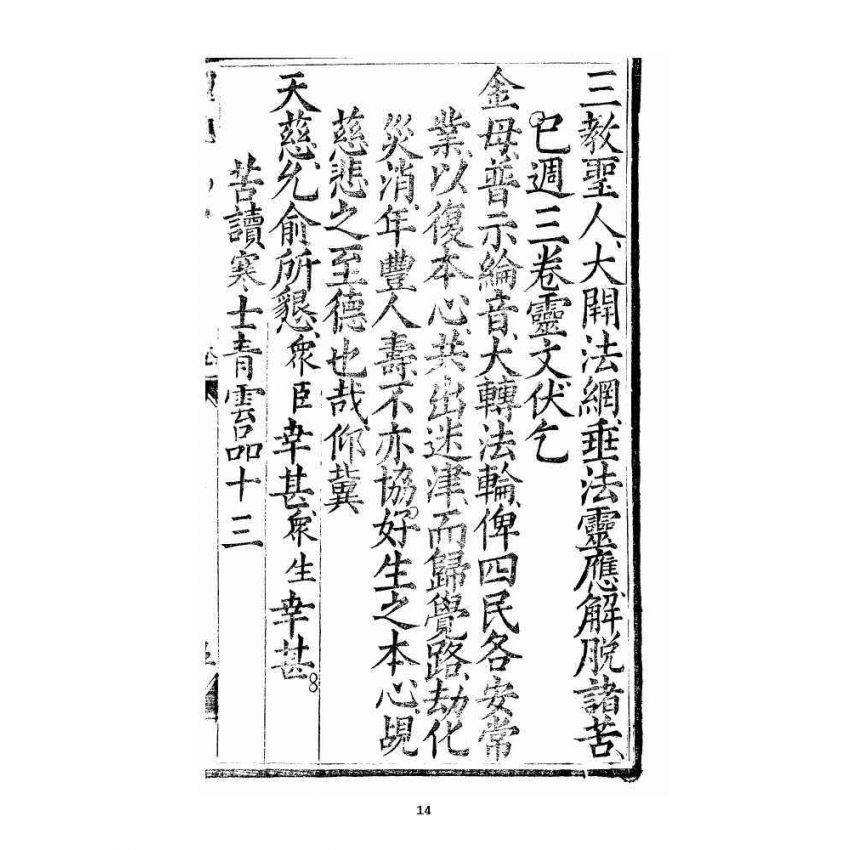 三教聖人、大開法網、垂法靈應、解脫諸苦、
已週三卷靈文伏乞
金母、普示綸音、大轉法輪、俾四民各安常
業、以復本心、共出迷津、而歸覺路、劫化
災消、年豐人壽、不亦協好生之本心、覘
慈悲之至德也哉、仰冀
天慈、允俞所懇、衆臣幸甚、衆生幸甚。
苦讀寒士青雲品十三
14